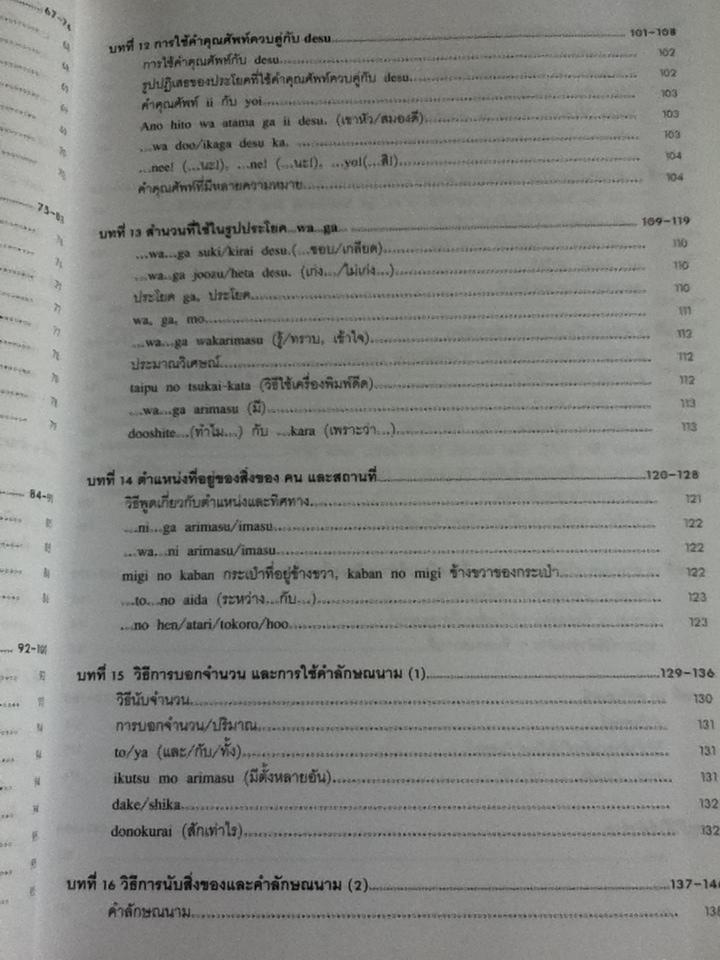 67-74
บทที่ 12 การใช้คำคุณศัพท์ควบคู่กับ desu 101-108
การใช้คำคุณศัพท์กับ desu 102
รูปปฏิเสธของประโยคที่ใช้คำคุณศัพท์ควบคู่กับ desu 102
คำคุณศัพท์ ii กับ yoi 103
Ano hito wa atama ga ii desu. (เขาหัว/สมองดี) 103
...wa doo/ikaga desu ka. 103
...nee! (...นะ!), ...ne! (...นะ!), ...yo!(...สิ!) 104
คำคุณศัพท์ที่มีหลายความหมาย 104
75-83
บทที่ 13 สำนวนที่ใช้ในรูปประโยค...wa...ga... 109-119
...wa...ga suki/kirai desu.(...ชอบ/เกลียด) 110
...wa...ga joozu/heta desu. (เก่ง.../ไม่เก่ง...) 110
ประโยค ga, ประโยค 110
wa, ga, mo 111
...wa...ga wakarimasu (รู้/ทราบ, เข้าใจ) 112
ประมาณวิเศษณ์ 112
taipu no tsukai-kata (วิธีใช้เครื่องพิมพ์ดีด) 112
...wa...ga arimasu (มี) 113
dooshite...(ทำไม...) กับ ...kara (เพราะว่า...) 113
84-91
บทที่ 14 ตำแหน่งที่อยู่ของสิ่งของ คน และสถานที่ 120-128
วิธีพูดเกี่ยวกับตำแหน่งและทิศทาง 121
...ni...ga arimasu/imasu 122
...wa...ni arimasu/imasu 122
migi no kaban กระเป๋าที่อยู่ข้างขวา, kaban no migi ข้างขวาของกระเป๋า 122
...to...no aida (ระหว่าง...กับ...) 123
...no hen/atari/tokoro/hoo 123
92-100
บทที่ 15 วิธีการบอกจำนวน และการใช้คำลักษณนาม (1) 129-136
วิธีนับจำนวน 130
การบอกจำนวน/ปริมาณ 131
to/ya (และ/กับ/ทั้ง) 131
ikutsu mo arimasu (มีตั้งหลายอัน) 131
dake/shika 132
donokurai (สักเท่าไร) 132
บทที่ 16 วิธีการนับสิ่งของและคำลักษณนาม (2) 137-146
คำลักษณนาม 138